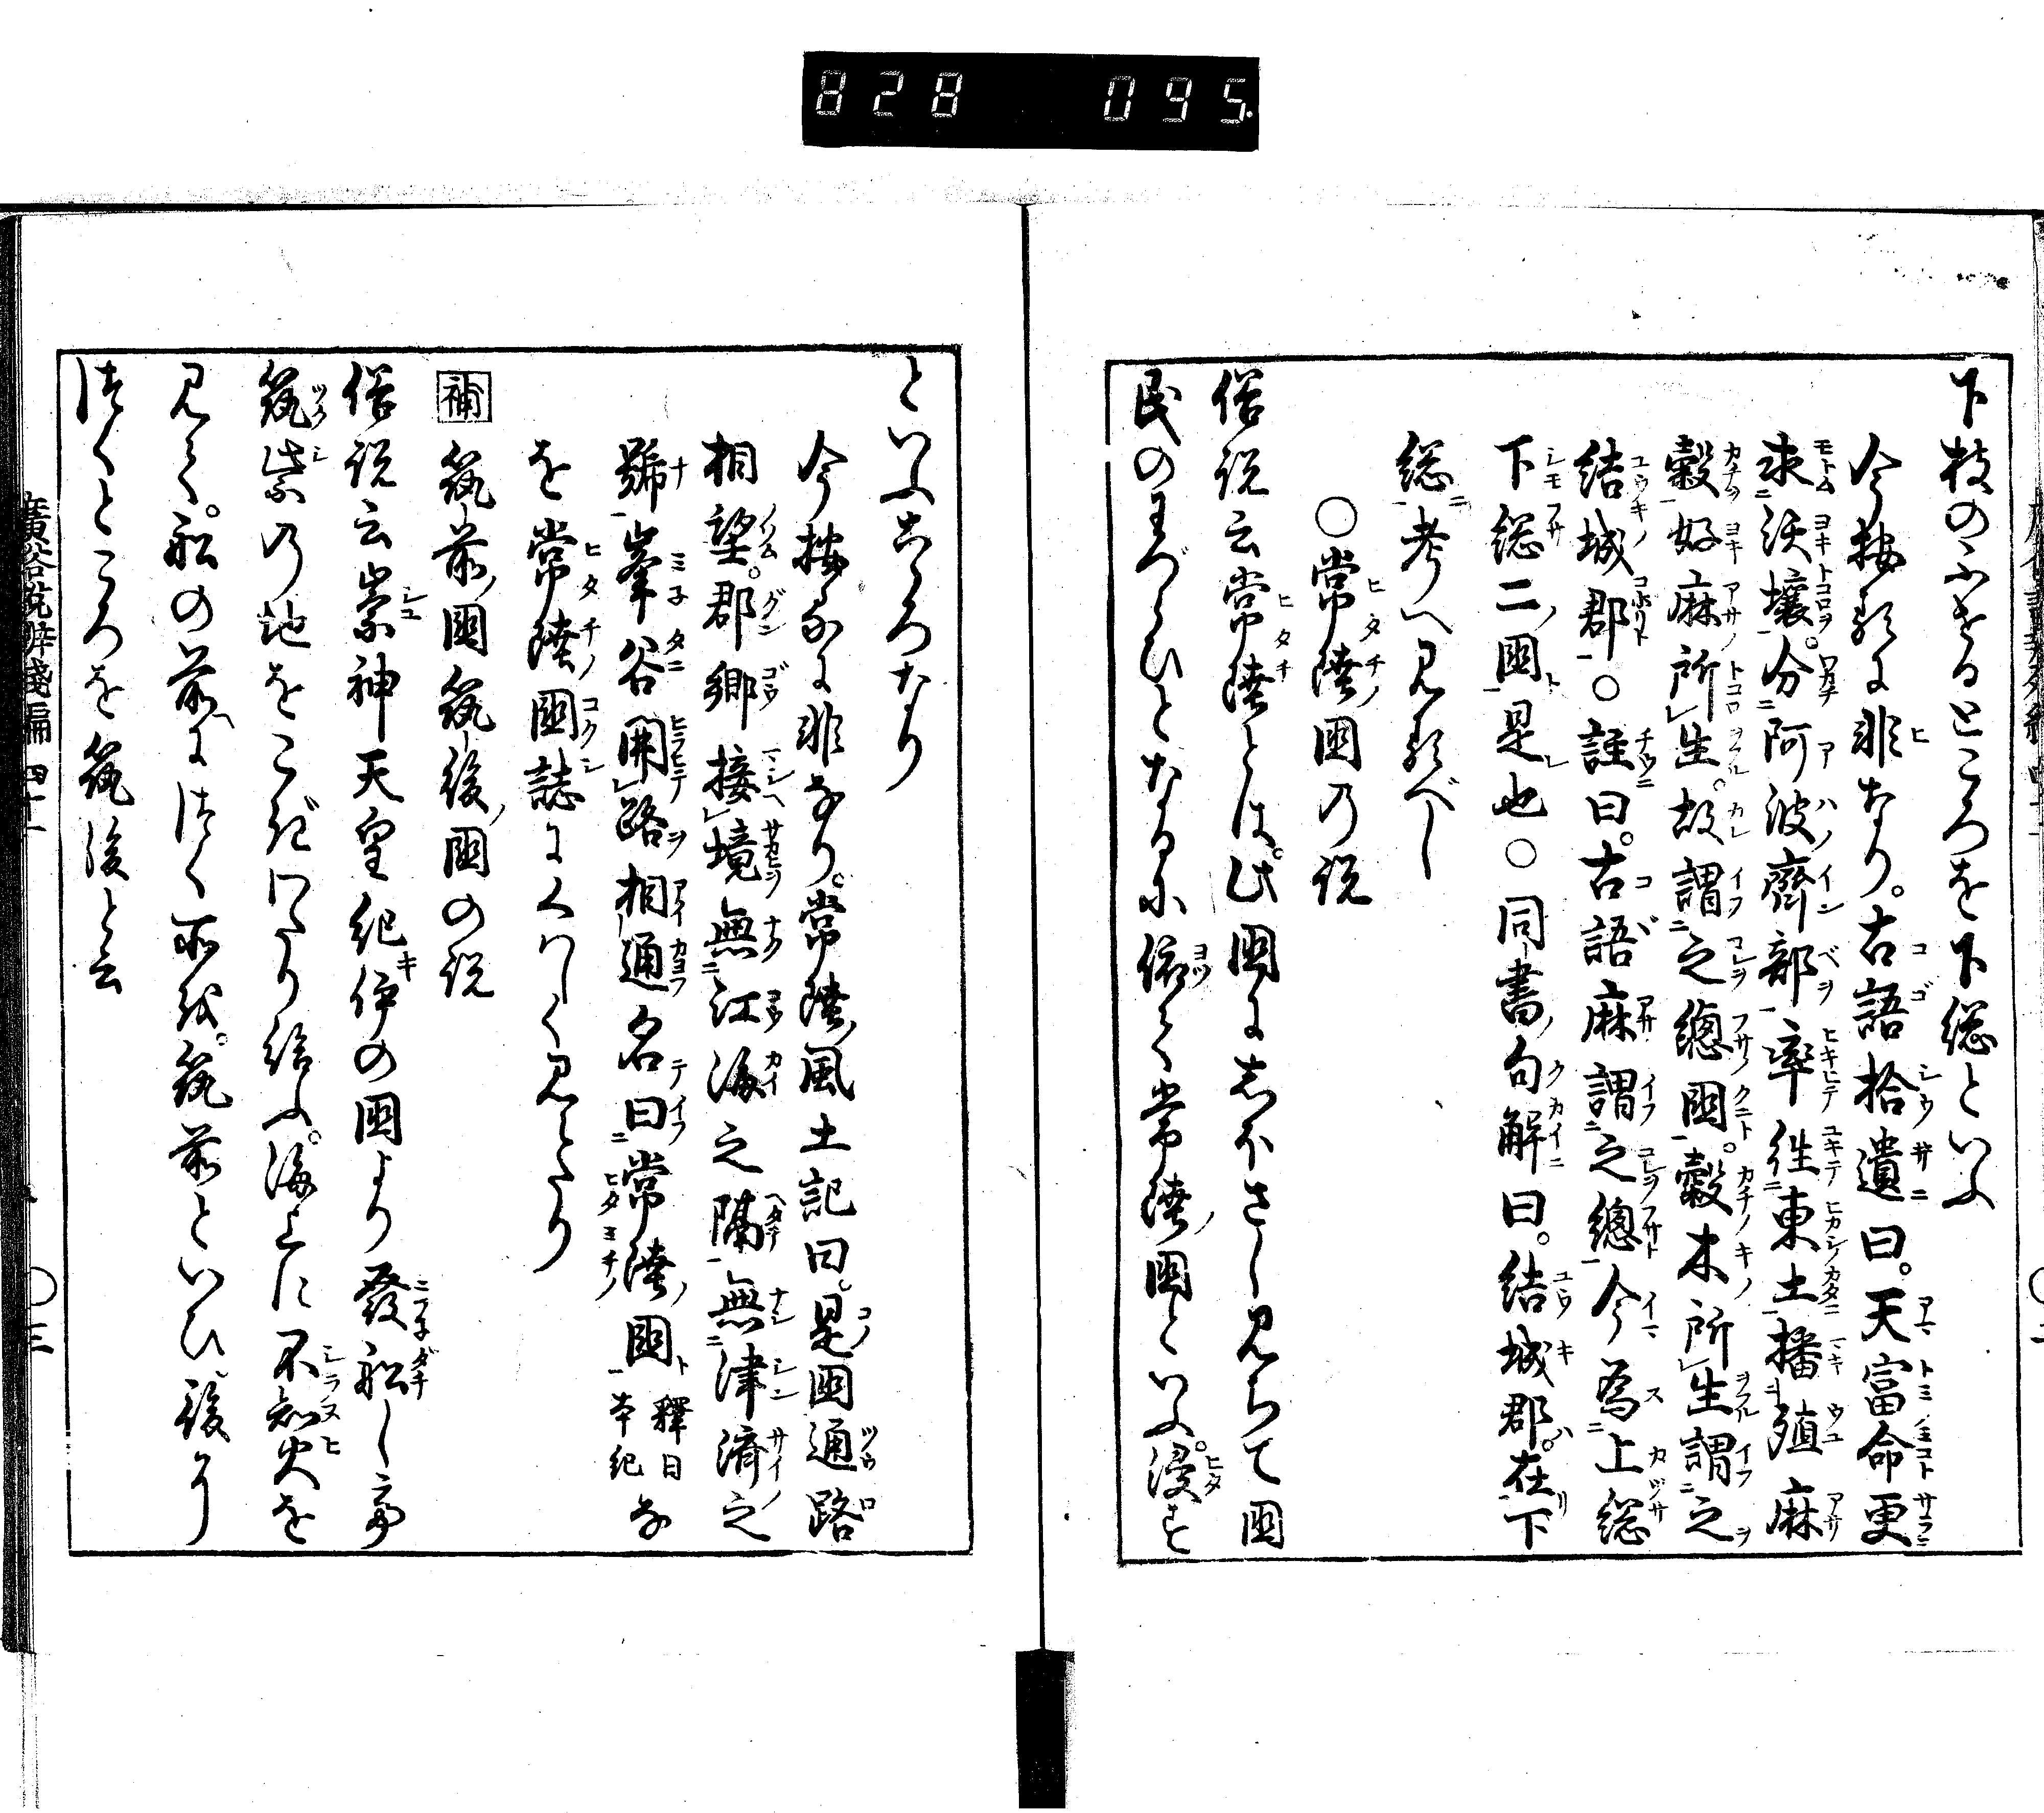 828 095
下枝のふせるところを下総といふ
今按るに非なり。古語拾遺曰。天富命更
求沃壌。分阿波齋部率徃東土播殖麻
穀好麻所生。故謂之總国。穀木所生謂之
結城郡〇註曰。古語麻謂之總今為上総
下総二国是也〇同書句解曰。結城郡在下
総考へ見るべし
〇常陸国の説
俗説云常陸とは。此国にしほさし見ちて国
民のわづらひとなるに依て常陸国といふ。浸す
といふこゝろなり
今按るに非なり。常陸風土記曰。是国通路
相望。郡郷接境無江海之隔無津済之
號峯谷開路相通名曰常陸国釋日本紀な
を常陸国誌にくはしく見えたり
補 筑前国筑後国の説
俗説云崇神天皇紀伊の国より發船し
筑紫の地をこぎわたり給ふ。海上に不知火を
見て。船の前につく所を。筑前といひ。後り
につくところを筑後と云
廣益俗説弁残編 四十一 〇三